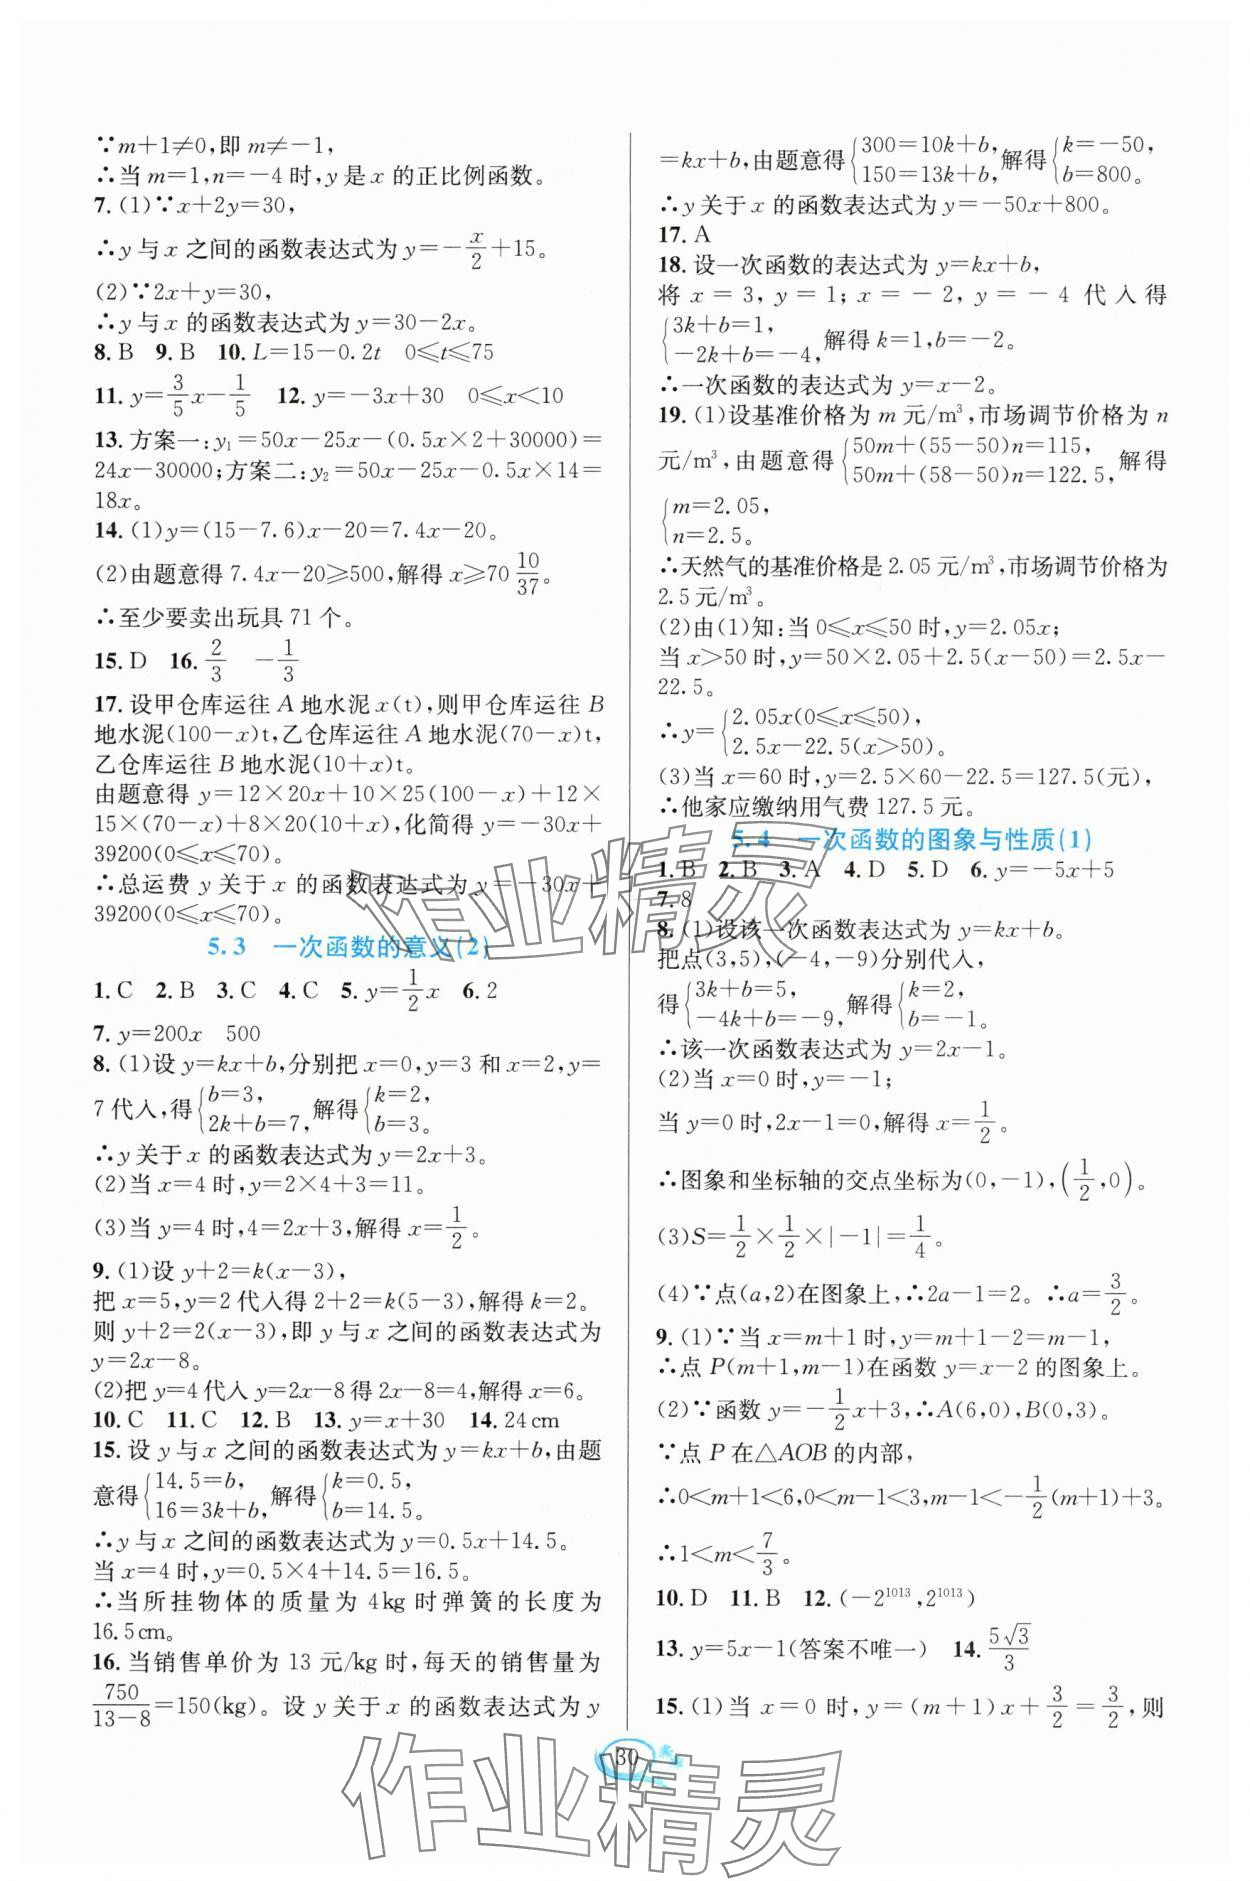 ∵m+1≠0,即 m≠−1,
∴当 m=1,n=−4 时,y 是 x 的正比例函数。
7. (1)∵x+2y=30,
∴y 与 x 之间的函数表达式为 y=−x/2+15。
(2)∵2x+y=30,
∴y 与 x 的函数表达式为 y=30−2x。
8. B 9. B 10. L=15−0.2t 0⩽t⩽75
11. y=3/5x−1/5 12. y=−3x+30 0⩽x<10
13. 方案一:y₁=50x−25x−(0.5x×2+30000)=
24x−30000;方案二:y₂=50x−25x−0.5x×14=
18x。
14. (1)y=(15−7.6)x−20=7.4x−20。
(2)由题意得 7.4x−20⩾500,解得 x⩾70 10/37。
∴至少要卖出玩具 71 个。
15. D 16. 2/3 −1/3
17. 设甲仓库运往 A 地水泥 x(t),则甲仓库运往 B
地水泥(100−x)t,乙仓库运往 A 地水泥(70−x)t,
乙仓库运往 B 地水泥(10+x)t。
由题意得 y=12×20x+10×25(100−x)+12×
15×(70−x)+8×20(10+x),化简得 y=−30x+
39200(0⩽x⩽70)。
∴总运费 y 关于 x 的函数表达式为 y=−30x+
39200(0⩽x⩽70)。
5.3 一次函数的意义(2)
1. C 2. B 3. C 4. C 5. y=1/2x 6. 2
7. y=200x 500
8. (1)设 y=kx+b,分别把 x=0,y=3 和 x=2,y=
7 代入,得{b=3, 2k+b=7, 解得{k=2, b=3。
∴y 关于 x 的函数表达式为 y=2x+3。
(2)当 x=4 时,y=2×4+3=11。
(3)当 y=4 时,4=2x+3,解得 x=1/2。
9. (1)设 y+2=k(x−3),
把 x=5,y=2 代入得 2+2=k(5−3),解得 k=2。
则 y+2=2(x−3),即 y 与 x 之间的函数表达式为
y=2x−8。
(2)把 y=4 代入 y=2x−8 得 2x−8=4,解得 x=6。
10. C 11. C 12. B 13. y=x+30 14. 24cm
15. 设 y 与 x 之间的函数表达式为 y=kx+b,由题
意得{14.5=b, 16=3k+b, 解得{k=0.5, b=14.5。
∴y 与 x 之间的函数表达式为 y=0.5x+14.5。
当 x=4 时,y=0.5×4+14.5=16.5。
∴当所挂物体的质量为 4kg 时弹簧的长度为
16.5cm。
16. 当销售单价为 13 元/kg 时,每天的销售量为
750/(13−8)=150(kg)。设 y 关于 x 的函数表达式为 y
=kx+b,由题意得{300=10k+b, 150=13k+b, 解得{k=−50, b=800。
∴y 关于 x 的函数表达式为 y=−50x+800。
17. A
18. 设一次函数的表达式为 y=kx+b,
将 x=3,y=1;x=−2,y=−4 代入得
{3k+b=1, −2k+b=−4, 解得 k=1,b=−2。
∴一次函数的表达式为 y=x−2。
19. (1)设基准价格为 m 元/m³,市场调节价格为 n
元/m³,由题意得{50m+(55−50)n=115, 50m+(58−50)n=122.5, 解得
{m=2.05, n=2.5。
∴天然气的基准价格是 2.05 元/m³,市场调节价格为
2.5 元/m³。
(2)由(1)知:当 0⩽x⩽50 时,y=2.05x;
当 x>50 时,y=50×2.05+2.5(x−50)=2.5x−
22.5。
∴y={2.05x(0⩽x⩽50), 2.5x−22.5(x>50)。
(3)当 x=60 时,y=2.5×60−22.5=127.5(元),
∴他家应缴纳用气费 127.5 元。
5.4 一次函数的图象与性质(1)
1. B 2. B 3. A 4. D 5. D 6. y=−5x+5
7. 8
8. (1)设该一次函数表达式为 y=kx+b。
把点(3,5),(−4,−9)分别代入,
得{3k+b=5, −4k+b=−9, 解得{k=2, b=−1。
∴该一次函数表达式为 y=2x−1。
(2)当 x=0 时,y=−1;
当 y=0 时,2x−1=0,解得 x=1/2。
∴图象和坐标轴的交点坐标为(0,−1),(1/2,0)。
(3)S=1/2×1/2×|−1|=1/4。
(4)∵点(a,2)在图象上,∴2a−1=2。∴a=3/2。
9. (1)∵当 x=m+1 时,y=m+1−2=m−1,
∴点 P(m+1,m−1)在函数 y=x−2 的图象上。
(2)∵函数 y=−1/2x+3,∴A(6,0),B(0,3)。
∵点 P 在△AOB 的内部,
∴0<m+1<6,0<m−1<3,m−1<−1/2(m+1)+3。
∴1<m<7/3。
10. D 11. B 12. (−2¹⁰¹³,2¹⁰¹³)
13. y=5x−1(答案不唯一) 14. 5√3/3
15. (1)当 x=0 时,y=(m+1)x+3/2=3/2,则
30
作业精灵
作业精灵